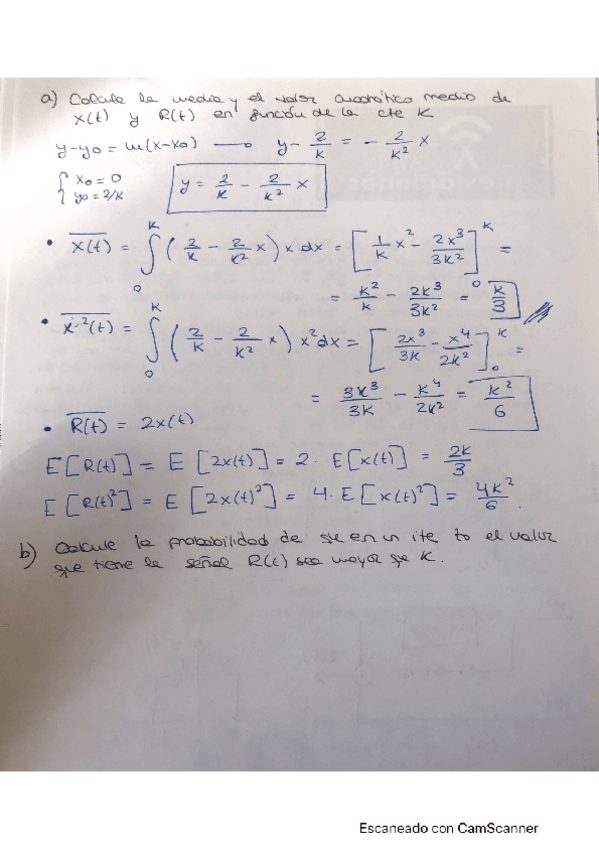 a) Calcule la media y el valor cuadrático medio de
x(t) y R(t) en función de la cte K
y-y0 = m(x-x0) → y - 2/K = - 2/K² x
{ x0 = 0
y0 = 2/K
y = 2/K - 2/K² x
• x(t)‾ = ∫₀ᴷ ( 2/K - 2/K² x ) x dx = [ 1/K x² - 2x³/3K² ]₀ᴷ =
= K²/K - 2K³/3K² = K/3
• x²(t)‾ = ∫₀ᴷ ( 2/K - 2/K² x ) x² dx = [ 2x³/3K - x⁴/2K² ]₀ᴷ =
= 3K³/3K - K⁴/2K² = K²/6
• R(t)‾ = 2x(t)
E[R(t)] = E[2x(t)] = 2 · E[x(t)] = 2K/3
E[R(t)²] = E[2x(t)²] = 4 · E[x(t)²] = 4K²/6.
b) Calcule la probabilidad de que en un ite to el valor
que tiene la señal R(t) sea mayor que K.
Escaneado con CamScanner